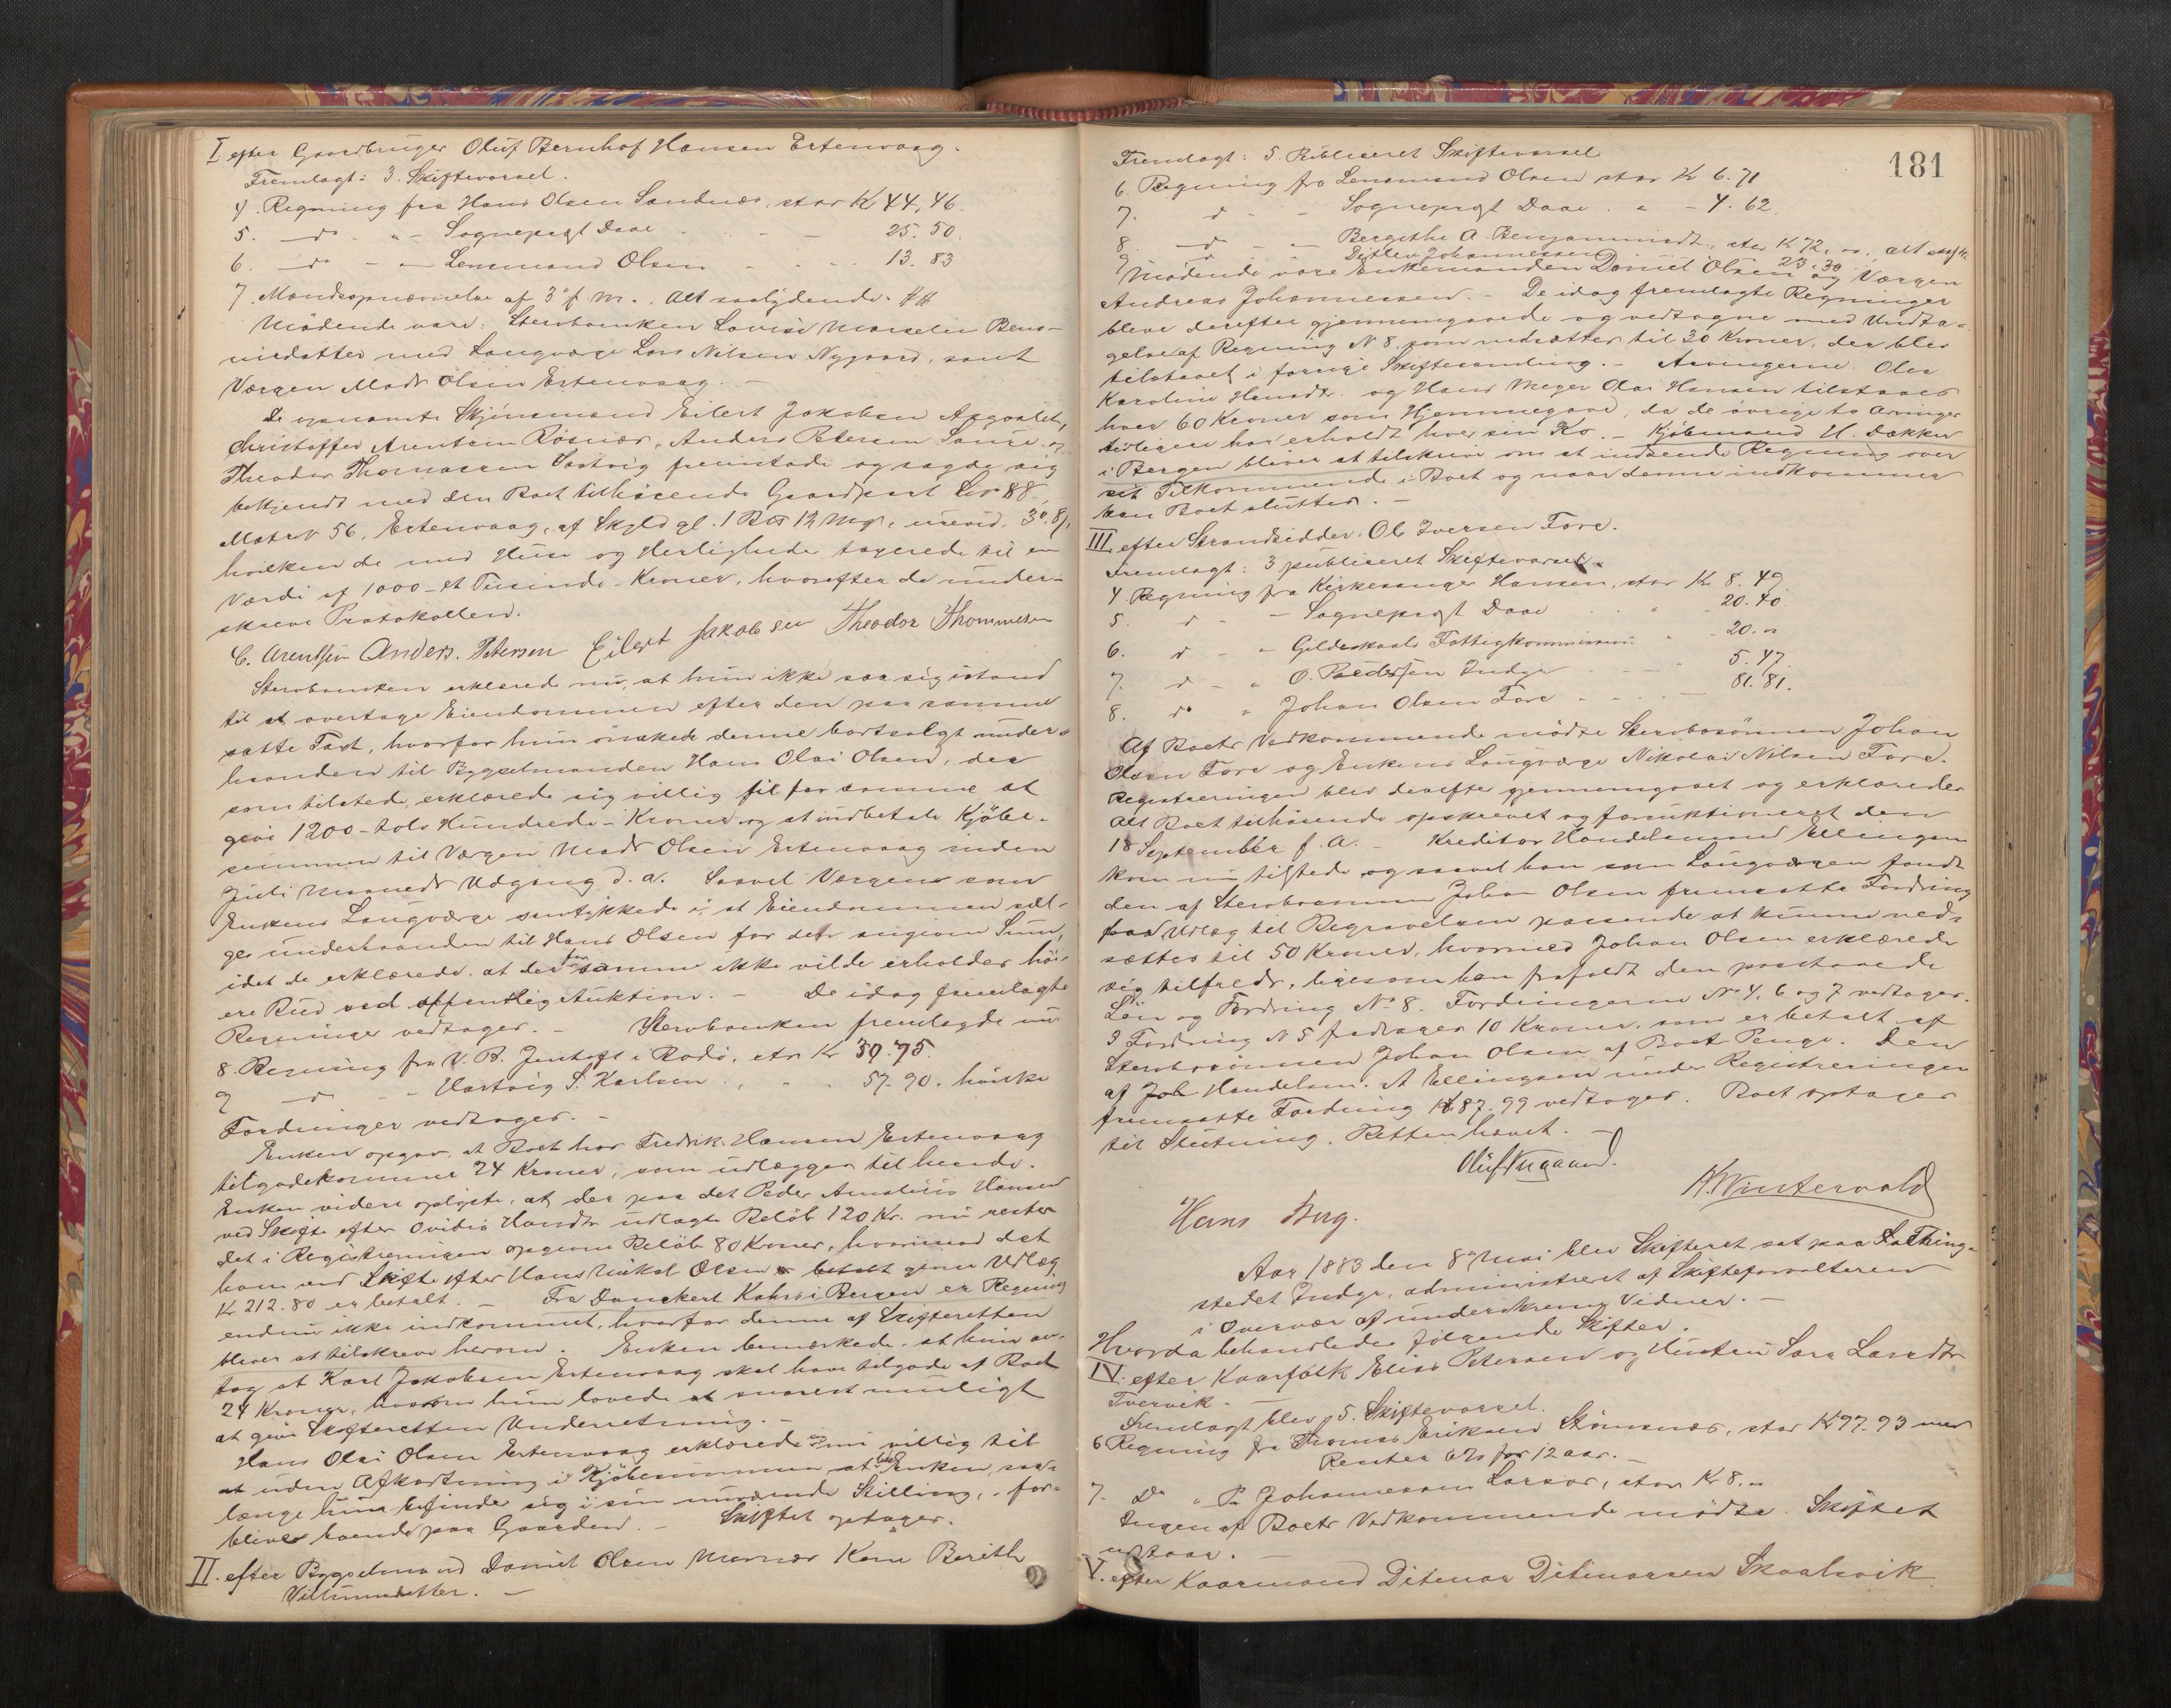 I efter Gaardbruger Oluf Bernhof Hansen Ertenvaag.
Fremlagt: 3. Skiftevarsel.
4. Regning fra Hans Olsen Sandnes, stor Kr 44,46.
5. — do - " - Sogneprest Daae 25.50.
6. — do - " - Lensmand Olsen 13.83
7. Mandsopnævnelse af 3' f. M., alt saalydende. ##
Mødende vare: Stervboenken Lovise Marselie Beno-
nisdatter med Laugværge Lars Nilsen Nygaard, samt
Værgen Mads Olsen Ertenvaag. —
De opnævnte Skjønsmænd Eilert Jakobsen
Christoffer Arentsen Røsnes, Anders Petersen og
Theodor Thomassen fremstode og sagde sig
bekjendt med den Boet tilhørende Gaardpart Lno 88,
Matr N 56, Ertenvaag, af Skyld gl. 1 12 Mrk, urevid. 3 . 8 ,
hvilken de med Huse og Herligheder taxerede til en
Værdi af 1000 - et Tusinde - Kroner, hvorefter de under-
skreve Protokollen.
C. Arentsen Anders. Petersen Eilert Jakobsen Theodor Thommesen
Stervboenken erklærede nu, at hun ikke saa sig istand
til at overtage Eiendommen efter den paa samme
satte Taxt, hvorfor hun ønskede denne bortsolgt under-
haanden til Bygselmanden Hans Olai Olsen, der
som tilstede, erklærede sig villig til for samme at
give 1200 - tolv Hundrede - Kroner og at indbetale Kjøbe-
summen til Værgen Mads Olsen Ertenvaag inden
Juli Maaneds Udgang d. A. Saavel Værgen som
Enkens Laugværge samtykkede i, at Eiendommen sæl-
ges underhaanden til Hans Olsen for den angivne Sum,
idet de erklærede, at der for samme ikke vilde erholdes høi-
ere Bud ved offentlig Auktion. — De idag fremlagte
Regninger vedtages. — Stervboenken fremlagde nu
8. Regning fra V. B. Jentoft i Rødø, stor Kr 39.75.
9 — do - " Hartvig S. Karlsen " 57.90. hvilke
Fordringer vedtages. —
Enken opgav, at Boet hos Fredrik Hansen Ertenvaag
tilgodekommer 24 Kroner, som udlægges til hende.
Enken videre oplyste, at der paa det Peder Hansen
ved Skifte efter Ovidia Hansdtr udlagte Beløb 120 Kr. nu rester
det i Registreringen opgivne Beløb 80 Kroner, hvorimod det
ham ved Skifte efter Hans Mikal Olsen betalt givne Udlæg
Kr 212.80 er betalt. — Fra Danckert Kahrs i Bergen er Regning
endnu ikke indkommet, hvorfor denne af Skifteretten
bliver at tilskrive herom. Enken bemærkede, at hun an-
tog at Karl Jakobsen Ertenvaag skal have tilgode af Boet
24 Kroner, hvorom hun lovede at snarest muligt
at give Skifteretten Underretning. —
Hans Olai Olsen Ertenvaag erklærede sig nu villig til
at uden Afkortning i Kjøbesummen at lade Enken, saa-
længe hun befinder sig i sin nuværende Stilling, for-
blive boende paa Gaarden. — Skiftet optages.
II. efter Bygselmand Daniel Olsen Kone Berith
Villumsdatter. —
181
Fremlagt: 5. Publiseret Skiftevarsel
6. Regning fra Lensmand Olsen stor Kr 6.71
7. d - - Sogneprest Daae " - 4.62.
8. — d - — Bergithe A. Benjaminsdt, stor Kr 72, " , alt
9 Ditlev Johannessen 25.30
Mødende vare Enkemanden Daniel Olsen og Værgen
Andreas Johannessen. — De idag fremlagte Regninger
bleve derefter gjennemgaaede og vedtagne med Undta-
gelse af Regning N 8, som nedsættes til 30 Kroner, der blev
tilstaaet i forrige Skiftesamling. — Arvingerne Olea
Karoline Hansdtr. og Hans Meyer Olai Hansen tilstaaes
hver 60 Kroner som Hjemmegave, da de øvrige to Arvinger
tidligere har erholdt hver sin Ko. — Kjøbmand H. Dekker
i Bergen bliver at tilskrive om at indsende Regning over
sit Tilkommende i Boet og naar denne indkommer
kan Boet sluttes. —
III efter Strandsidder Ole Iversen Fore.
Fremlagt: 3. publiseret Skiftevarsel.
4. Regning fra Kirkesanger Hansen, stor Kr 8.49.
5. d - - Sogneprest Daae " 20.40
6. d - " Gildeskaals Fattigkommission " 20. "
7. d - " O. Pedersen Indyr 5.47.
8. do " Johan Olsen Fore — 81.81.
Af Boets Vedkommende mødte Stervbosønnen Johan
Olsen Fore og Enkens Laugværge Nikolai Nilsen Fore.
Registreringen blev derefter gjennemgaaet og erklæredes
alt Boet tilhørende opskrevet og forauktioneret den
18 September f. A. — Kreditor Handelsmand Ellingsen
kom nu tilstede og saavel han som Laugværgen fandt
den af Stervbosønnen Johan Olsen fremsatte Fordring
paa Udlæg til Begravelsen passende at kunne ned-
sættes til 50 Kroner, hvormed Johan Olsen erklærede
sig tilfreds, ligesom han frafaldt den paastaaede
Løn og Fordring No 8. Fordringerne No 4, 6 og 7 vedtages.
I Fordring N 5 fradrages 10 Kroner, som er betalt af
Stervbosønnen Johan Olsen af Boets Penge. Den
af Joh Handelsm. A Ellingsen under Registreringen
fremsatte Fordring Kr 87.99 vedtages. Boet optages
til Slutning. Retten hævet. —
Oluf Nygaard.
K. Wintervold
Hans Berg.
Aar 1883 den 8de Mai blev Skifteret sat paa Thing-
stedet Indyr, administreret af Skifteforvalteren
i Overvær af underskrevne Vidner. —
Hvorda behandledes følgende Skifter.
IV. efter Kaarfolk Elias Petersen og Hustru Sara Larsdtr
Tvervik. —
Fremlagt blev, 5. Skiftevarsel.
6. Regning fra Thomas Eriksen Støvsnes, stor Kr 97.93 med
Renter 6% for 12 Aar. —
7. Do " P. Johannessen Larsos, stor Kr 8. "
Ingen af Boets Vedkommende mødte. Skiftet
udstaar. —
V. efter Kaarmand Ditmar Ditmarsen Skaalsvik